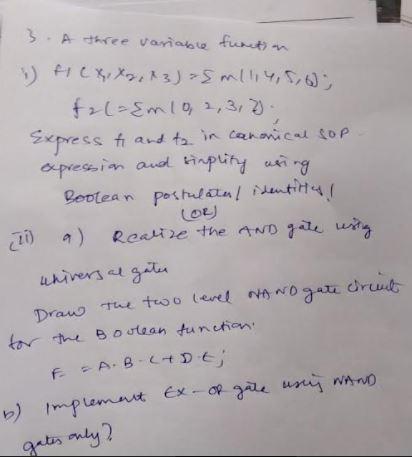 3. A three variable function
i) f1 (x1, x2, x3) = Σ m(1,4,5,6);
f2(=Σm(0, 2, 3, 7).
Express f1 and f2 in canonical SOP
expression and simplity using
Boolean postulates/ identities/
(OR)
(ii) a) Realize the AND gate using
universal gates
Draw the two level NAND gate circuit
for the Boolean function:
F = A.B.C+D.E;
b) Implement EX-OR gate using NAND
gates only?